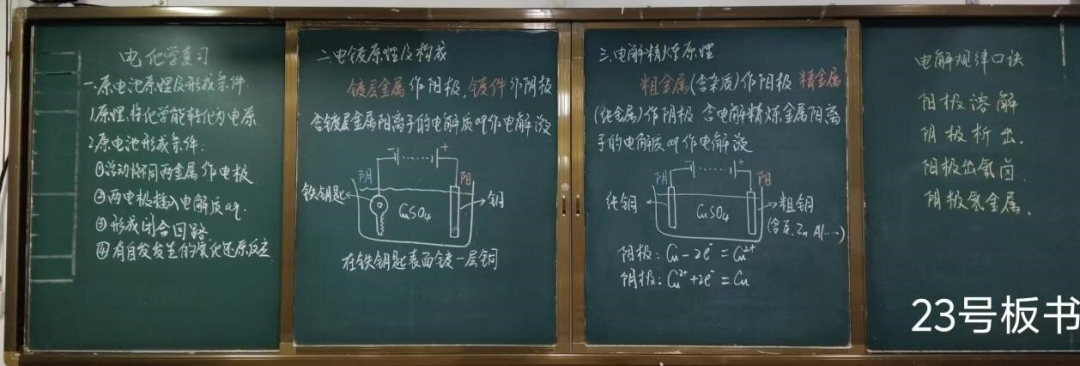 电化学复习
一.原电池原理及形成条件.
1.原理:将化学能转化为电源
2.原电池形成条件:
①活动性不同两金属作电极
②两电极插入电解质aq.
③形成闭合回路
④有自发发生的氧化还原反应
二.电镀原理及构成
镀层金属作阳极,镀件作阴极
含镀层金属阳离子的电解质aq作电解液
- +
阴 阳
铁钥匙 铜
CuSO4
在铁钥匙表面镀一层铜
三.电解精炼原理
粗金属(含杂质)作阳极 精金属
(纯金属)作阴极 含电解精炼金属阳离
子的电解质aq作电解液
- +
阴 阳
纯铜 粗铜
CuSO4
(含Fe.Zn Al……)
阳极:Cu-2e⁻=Cu²⁺
阴极:Cu²⁺+2e⁻=Cu
电解规律口诀
阳极溶解
阴极析出.
阳极出氧卤
阴极氢金属.
23号板书